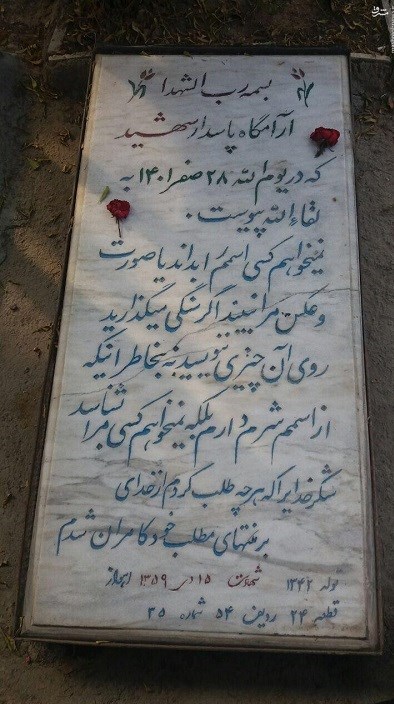 بسمه رب الشهدا
آرامگاه پاسدار شهید
که در یوم الله ۲۸ صفر ۱۴۰۱ به
لقاءالله پیوست.
نمیخواهم کسی اسمم را بداند یا صورت
و عکس مرا ببیند اگر سنگی میگذارید
روی آن چیزی ننویسید نه بخاطر اینکه
از اسمم شرم دارم بلکه نمیخواهم کسی مرا بشناسد
شکر خدا را که هر چه طلب کردم از خدای
بر منتهای مطلب خود کامران شدم
تولد ۱۳۴۲ شهادت ۱۵ دی ۱۳۵۹ اهواز
قطعه ۲۴ ردیف ۵۴ شماره ۲۵